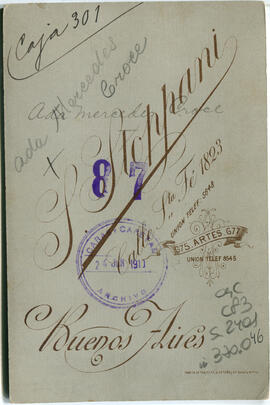 Caja 301
Ada Mercedes
Croce
Ada mercedes Croce
X
S. Stoppani
87
Calle Sta. Fé 1823
UNION TELEF. 5848
675. ARTES. 677
UNION TELEF 8545
CARAS Y CARETAS
1911
ARCHIVO
Buenos Aires
AGC
CB3
S. 2401
n 370.046